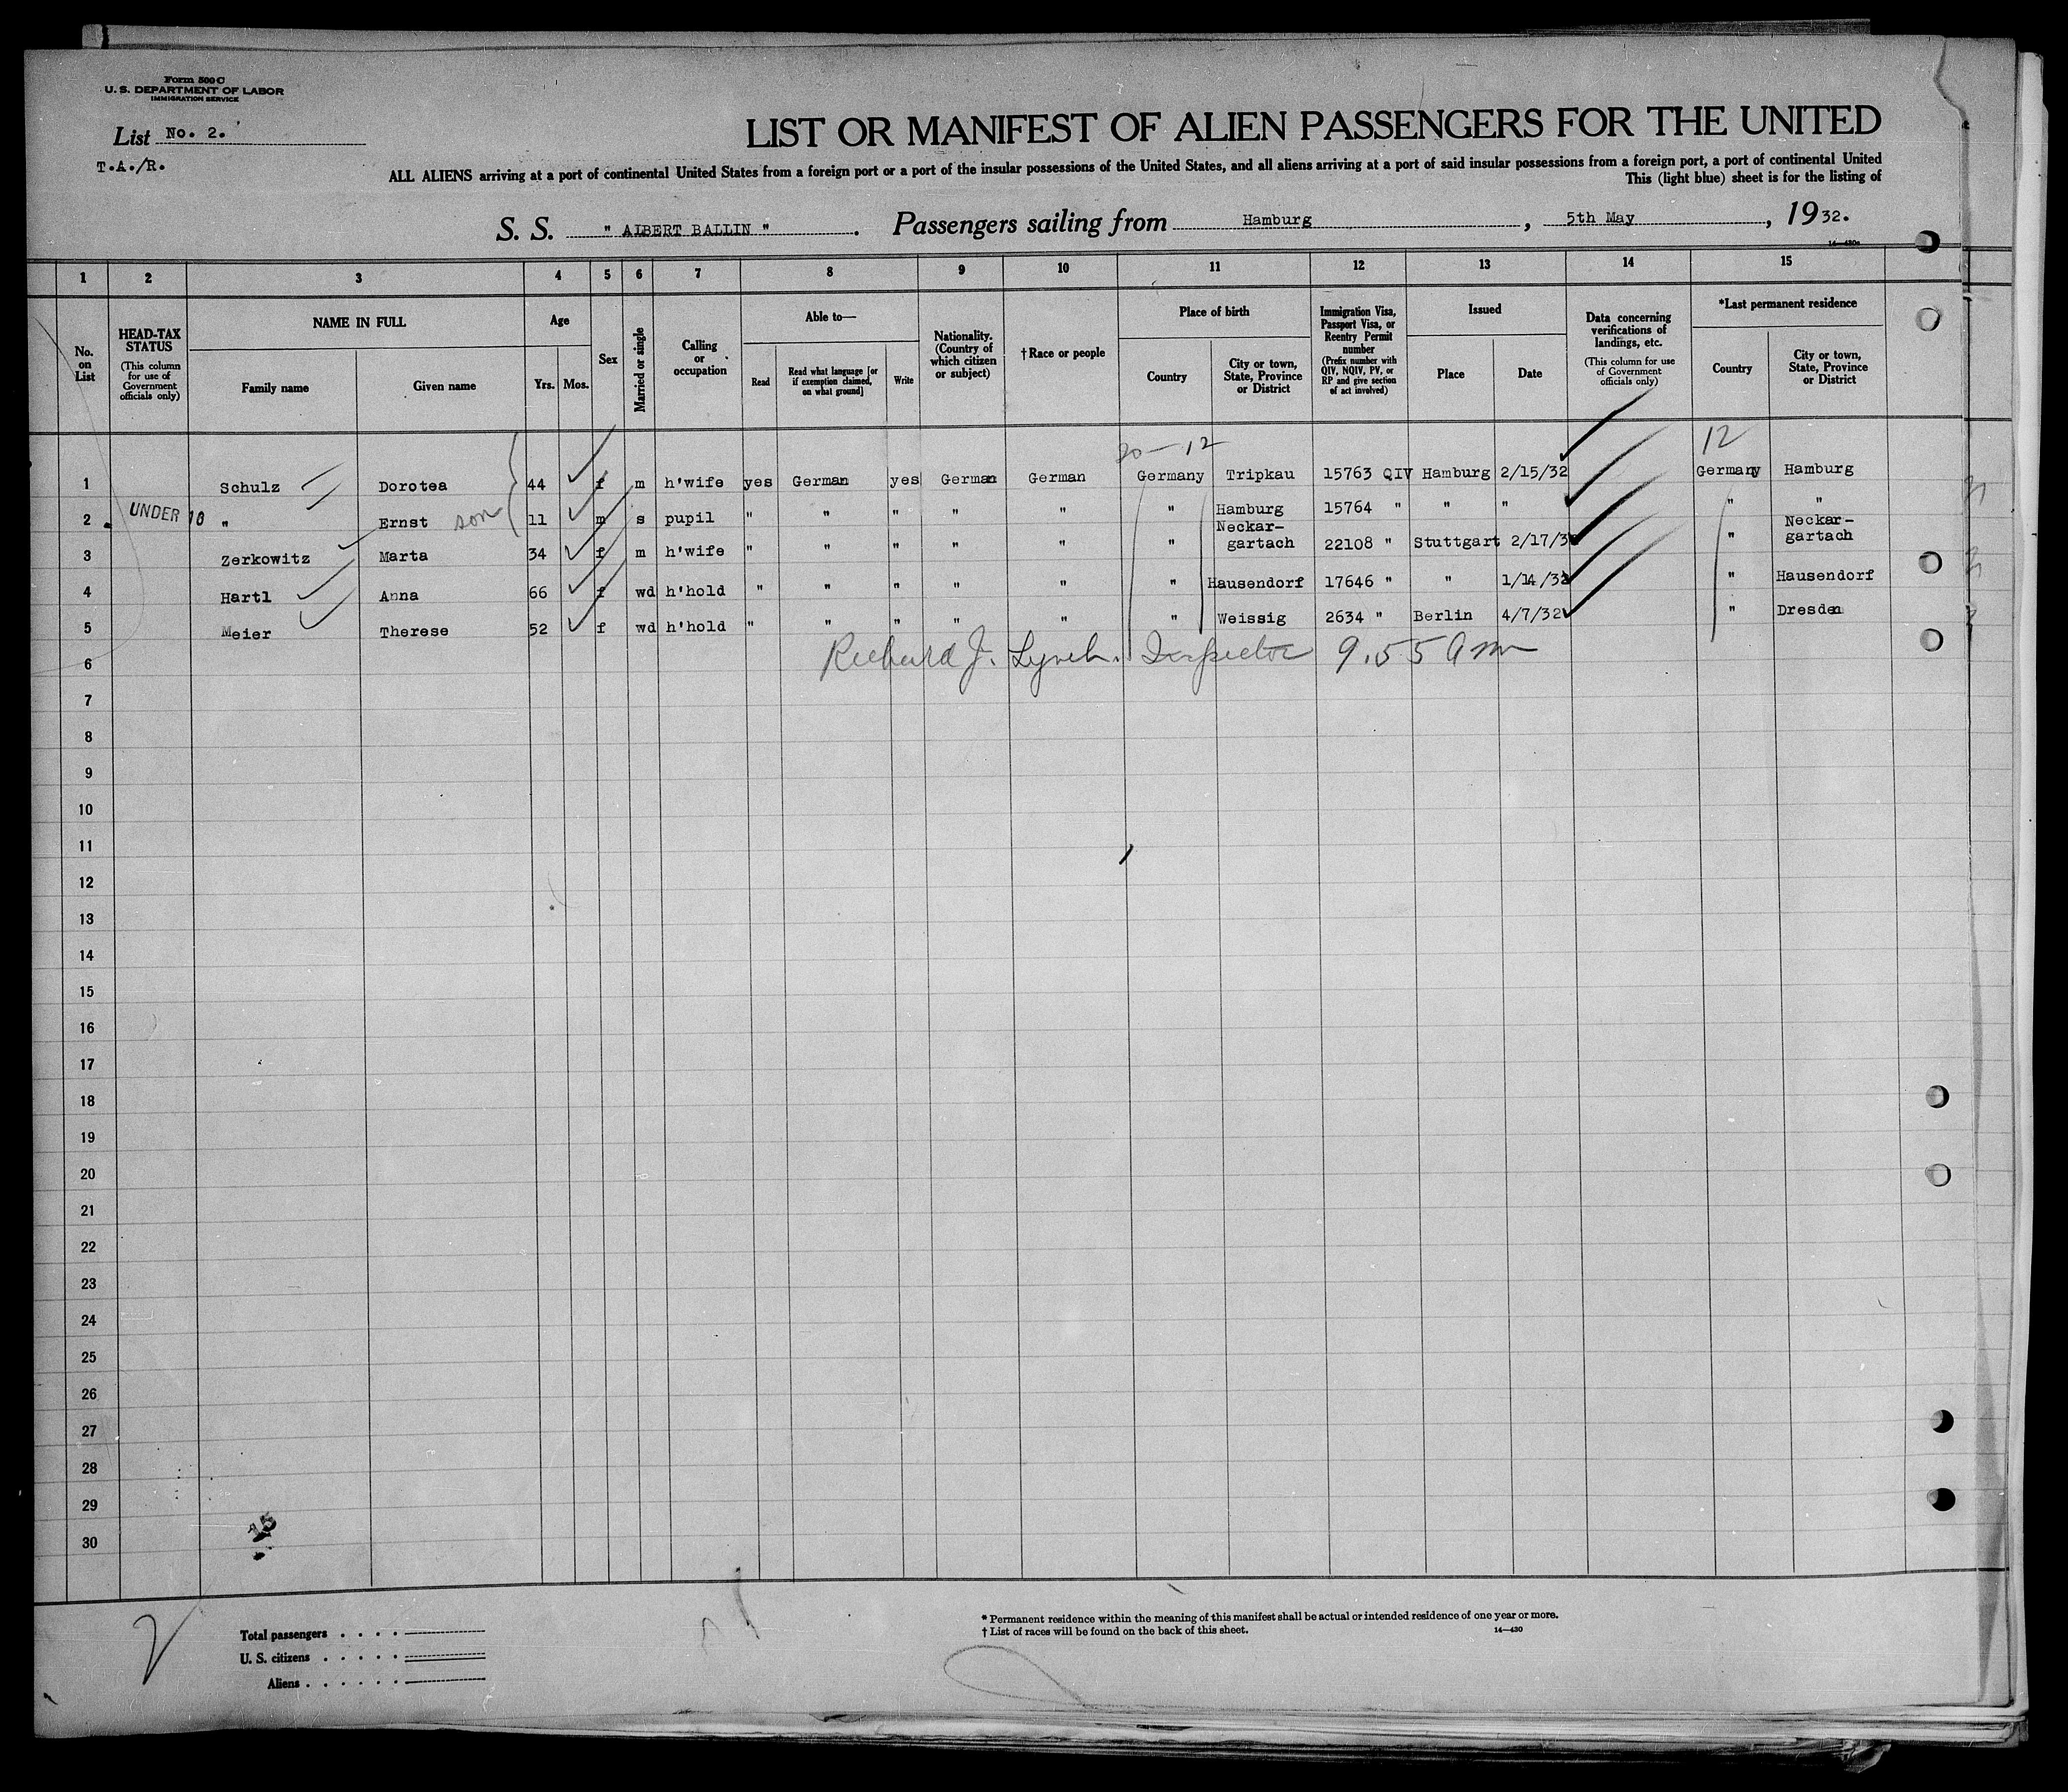 Form 500 C
U. S. DEPARTMENT OF LABOR
IMMIGRATION SERVICE
List No. 2.
T.A./R.
LIST OR MANIFEST OF ALIEN PASSENGERS FOR THE UNITED
ALL ALIENS arriving at a port of continental United States from a foreign port or a port of the insular possessions of the United States, and all aliens arriving at a port of said insular possessions from a foreign port, a port of continental United
This (light blue) sheet is for the listing of
S. S. " ALBERT BALLIN ". Passengers sailing from Hamburg, 5th May, 1932.
1 2 3 4 5 6 7 8 9 10 11 12 13 14 15
No. on List
HEAD-TAX STATUS
(This column for use of Government officials only)
NAME IN FULL
Family name
Given name
Age
Yrs. Mos.
Sex
Married or single
Calling or occupation
Able to—
Read
Read what language [or if exemption claimed, on what ground]
Write
Nationality. (Country of which citizen or subject)
† Race or people
Place of birth
Country
City or town, State, Province or District
Immigration Visa, Passport Visa, or Reentry Permit number
(Prefix number with QIV, NQIV, PV, or RP and give section of act involved)
Issued
Place
Date
Data concerning verifications of landings, etc.
(This column for use of Government officials only)
*Last permanent residence
Country
City or town, State, Province or District
12
1 Schulz Dorotea 44 f m h'wife yes German yes German German Germany Tripkau 15763 QIV Hamburg 2/15/32 Germany Hamburg
2 UNDER 16 " Ernst son 11 m s pupil " " " " " " Hamburg 15764 " " " " "
3 Zerkowitz Marta 34 f m h'wife " " " " " " Neckar-gartach 22108 " Stuttgart 2/17/3 " Neckar-gartach
4 Hartl Anna 66 f wd h'hold " " " " " " Hausendorf 17646 " " 1/14/32 " Hausendorf
5 Meier Therese 52 f wd h'hold " " " " " " Weissig 2634 " Berlin 4/7/32 " Dresden
6 Richard J. Lynch. Inspector 9.55 am
7
8
9
10
11
12
13
14
15
16
17
18
19
20
21
22
23
24
25
26
27
28
29
30
Total passengers
U. S. citizens
Aliens
* Permanent residence within the meaning of this manifest shall be actual or intended residence of one year or more.
† List of races will be found on the back of this sheet.
14—430